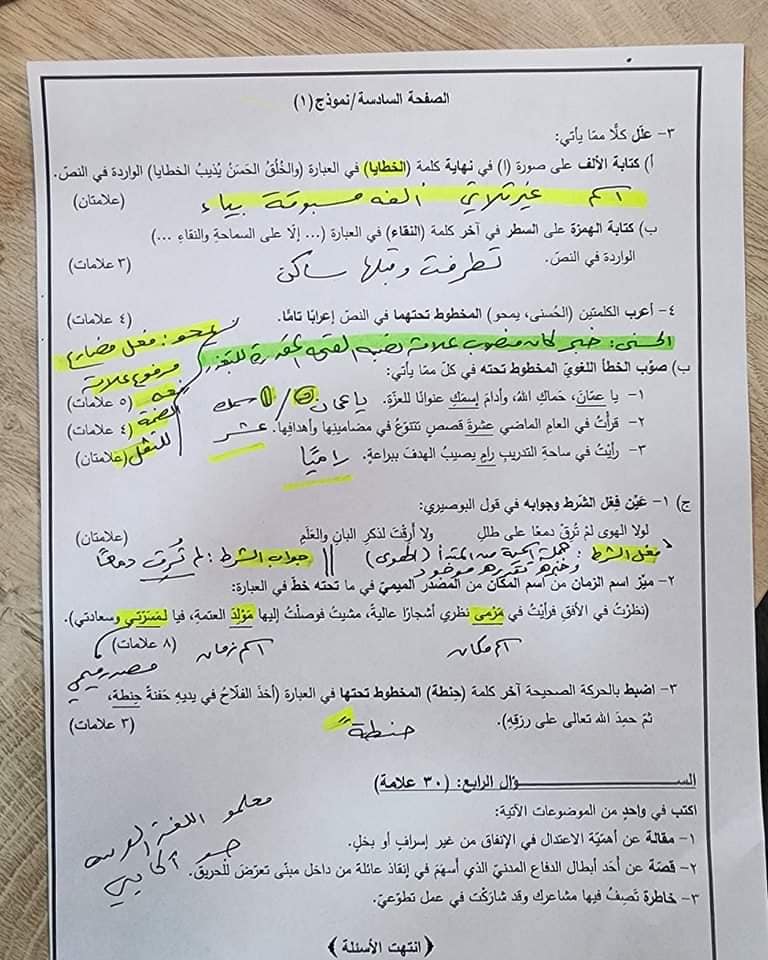 الصفحة السادسة/نموذج(١)
٣- علّل كلًّا ممّا يأتي:
أ) كتابة الألف على صورة (ا) في نهاية كلمة (الخطايا) في العبارة (والخُلُقُ الحَسَنُ يُذيبُ الخطايا) الواردة في النصّ.
اسم غير ثلاثي ألفه مسبوقة بياء (علامتان)
ب) كتابة الهمزة على السطر في آخر كلمة (النقاء) في العبارة (... إلّا على السماحةِ والنقاءِ ...)
الواردة في النصّ. (٣ علامات)
تطرفت وقبلها ساكن
٤- أعرب الكلمتين (الحُسنى، يمحو) المخطوط تحتهما في النصّ إعرابًا تامًّا. (٤ علامات)
يمحو: فعل مضارع مرفوع علامة رفعه الضمة للثقل
الحسنى: خبر كان منصوب علامة نصبه الفتحة المقدرة للتعذر
ب) صوّب الخطأ اللغويّ المخطوط تحته في كلّ ممّا يأتي:
١- يا عمّانَ، حَماكِ اللهُ، وأدامَ إسمَكِ عنوانًا للعزّةِ. يا عمانُ / اسمك (٥ علامات)
٢- قرأتُ في العامِ الماضي عشرةَ قصصٍ تتنوّعُ في مضامينِها وأهدافِها. عشر (٤ علامات)
٣- رأيتُ في ساحةِ التدريبِ رامٍ يصيبُ الهدفَ ببراعةٍ. راميًا (علامتان)
ج) ١- عَيّن فِعْلَ الشّرط وجوابه في قول البوصيري:
لولا الهوى لمْ تُرِقْ دمعًا على طللٍ ولا أرِقْتَ لذكرِ البانِ والعَلَمِ (علامتان)
فعل الشرط: جملة اسمية من المبتدأ (الهوى) وخبره تقديره موجود || جواب الشرط: لم تُرِق دمعًا
٢- ميّز اسم الزمان من اسم المكان من المصدر الميميّ في ما تحته خطّ في العبارة:
(نظرْتُ في الأفقِ فرأيتُ في مَرْمى نظري أشجارًا عاليةً، مشيتُ فوصلْتُ إليها مَوْلِدَ العتمةِ، فيا لمَسَرّتي وسعادتي).
اسم مكان اسم زمان مصدر ميمي (٨ علامات)
٣- اضبط بالحركة الصحيحة آخر كلمة (حِنطة) المخطوط تحتها في العبارة (أخذَ الفلّاحُ في يديهِ حَفنةً حِنطة،
ثمّ حمِدَ الله تعالى على رزقِهِ). (٣ علامات)
حنطةً
الســـؤال الرابع: (٣٠ علامة)
اكتب في واحدٍ من الموضوعات الآتية:
معلمو اللغة العربية
١- مقالة عن أهمّيّة الاعتدال في الإنفاق من غير إسرافٍ أو بخلٍ.
٢- قصّة عن أحَد أبطال الدفاع المدنيّ الذي أسهَمَ في إنقاذ عائلة من داخل مبنًى تعرّضَ للحريق.
٣- خاطرة تَصِفُ فيها مشاعرك وقد شارَكْت في عمل تطوّعيّ.
﴿انتهت الأسئلة﴾